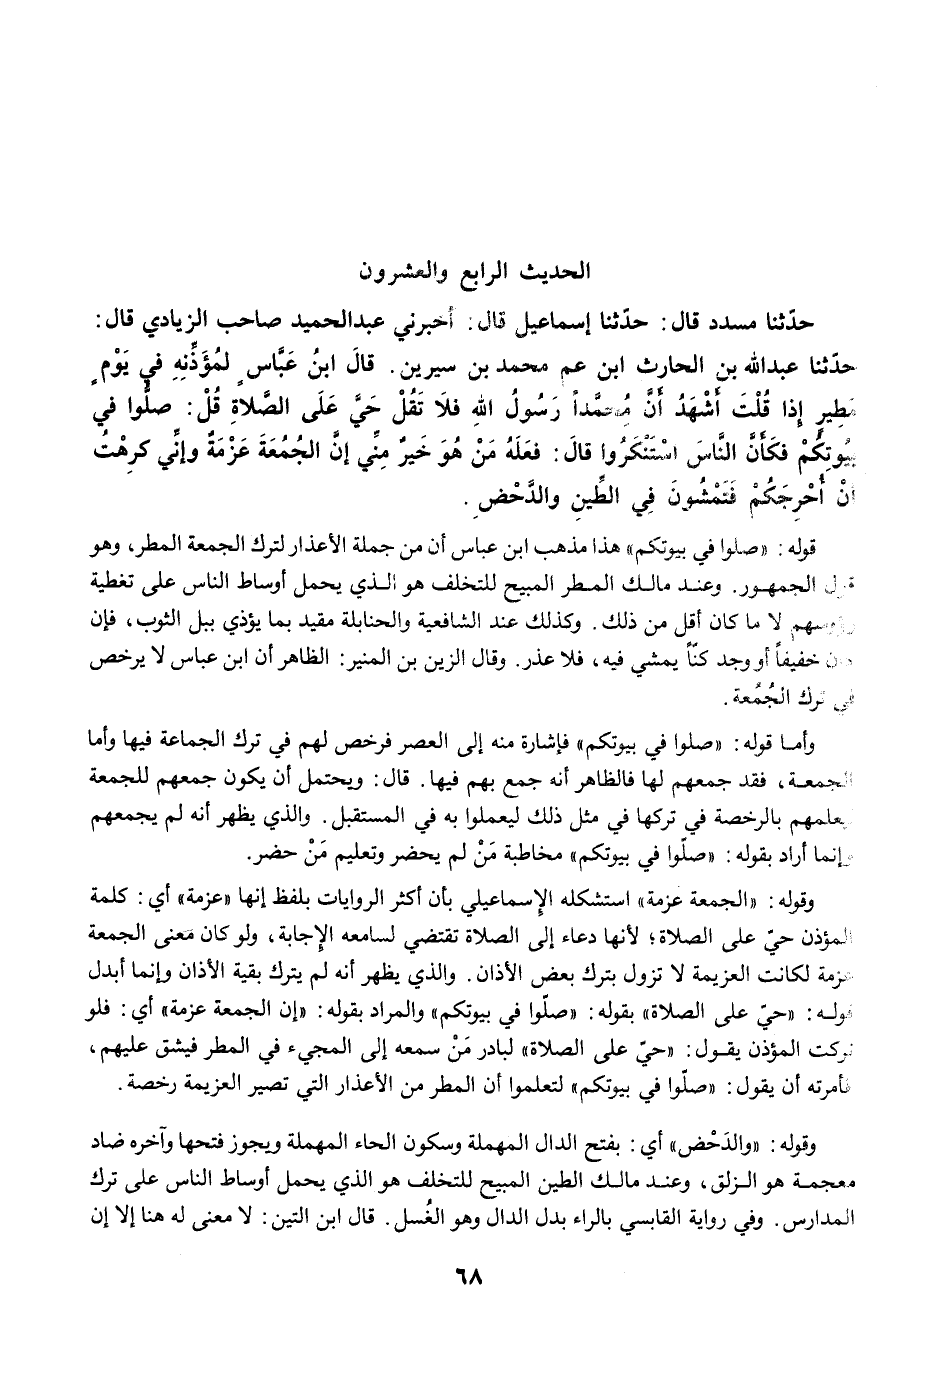 الحديث الرابع والعشرون
حدّثنا مسدد قال: حدّثنا إسماعيل قال: أخبرني عبدالحميد صاحب الزيادي قال:
حدّثنا عبدالله بن الحارث ابن عم محمد بن سيرين. قالَ ابنُ عَبَّاسٍ لمُؤَذِّنِهِ في يَوْمٍ
مَطِيرٍ إِذا قُلْتَ أَشْهَدُ أَنَّ مُحمَّداً رَسُولُ اللهِ فلَا تَقُلْ حَيَّ عَلَى الصَّلاةِ قُلْ: صلُّوا في
بيُوتِكُمْ فكَأَنَّ النَّاسَ اسْتَنْكَرُوا قالَ: فعَلَهُ مَنْ هُوَ خَيرٌ مِنِّي إنَّ الجُمُعَةَ عَزْمَةٌ وإنِّي كرِهْتُ
أنْ أُحْرِجَكُمْ فَتَمْشُونَ فِي الطِّينِ والدَّحْضِ.
قوله: «صلوا في بيوتكم» هذا مذهب ابن عباس أن من جملة الأعذار لترك الجمعة المطر، وهو
قول الجمهور. وعند مالك المطر المبيح للتخلف هو الذي يحمل أوساط الناس على تغطية
رؤوسهم لا ما كان أقل من ذلك. وكذلك عند الشافعية والحنابلة مقيد بما يؤذي ببل الثوب، فإن
كان خفيفاً أو وجد كنّاً يمشي فيه، فلا عذر. وقال الزين بن المنير: الظاهر أن ابن عباس لا يرخص
في ترك الجُمُعة.
وأما قوله: «صلوا في بيوتكم» فإشارة منه إلى العصر فرخص لهم في ترك الجماعة فيها وأما
الجمعة، فقد جمعهم لها فالظاهر أنه جمع بهم فيها. قال: ويحتمل أن يكون جمعهم للجمعة
ليعلمهم بالرخصة في تركها في مثل ذلك ليعملوا به في المستقبل. والذي يظهر أنه لم يجمعهم
وإنما أراد بقوله: «صلّوا في بيوتكم» مخاطبة مَنْ لم يحضر وتعليم مَنْ حضر.
وقوله: «الجمعة عزمة» استشكله الإسماعيلي بأن أكثر الروايات بلفظ إنها «عزمة» أي: كلمة
المؤذن حيّ على الصلاة؛ لأنها دعاء إلى الصلاة تقتضي لسامعه الإجابة، ولو كان معنى الجمعة
عزمة لكانت العزيمة لا تزول بترك بعض الأذان. والذي يظهر أنه لم يترك بقية الأذان وإنما أبدل
قوله: «حيّ على الصلاة» بقوله: «صلّوا في بيوتكم» والمراد بقوله: «إن الجمعة عزمة» أي: فلو
تركت المؤذن يقول: «حيّ على الصلاة» لبادر مَنْ سمعه إلى المجيء في المطر فيشق عليهم،
فأمرته أن يقول: «صلّوا في بيوتكم» لتعلموا أن المطر من الأعذار التي تصير العزيمة رخصة.
وقوله: «والدَحْض» أي: بفتح الدال المهملة وسكون الحاء المهملة ويجوز فتحها وآخره ضاد
معجمة هو الزلق، وعند مالك الطين المبيح للتخلف هو الذي يحمل أوساط الناس على ترك
المدارس. وفي رواية القابسي بالراء بدل الدال وهو الغُسل. قال ابن التين: لا معنى له هنا إلا إن
٦٨